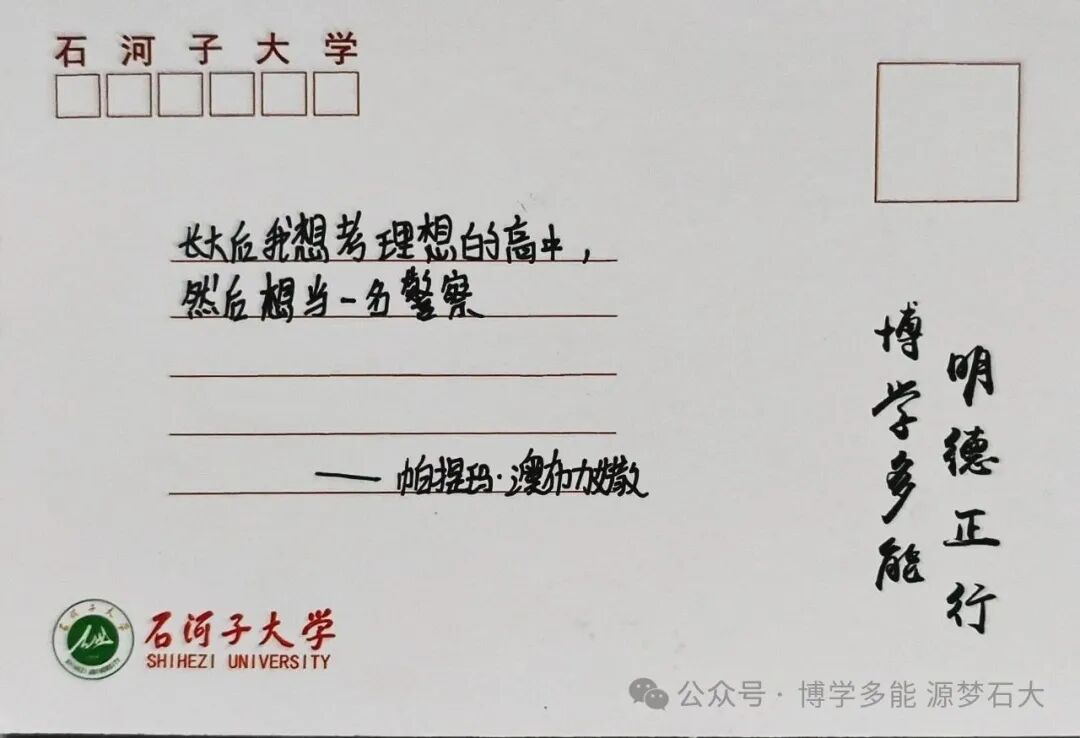 石河子大学
长大后我想考理想的高中,
然后想当一名警察
——帕提玛·澳布力嫩散
博学多能
明德正行
石河子大学
石河子大学
SHIHEZI UNIVERSITY
SHIHEZI UNIVERSITY
公众号·博学多能 源梦石大